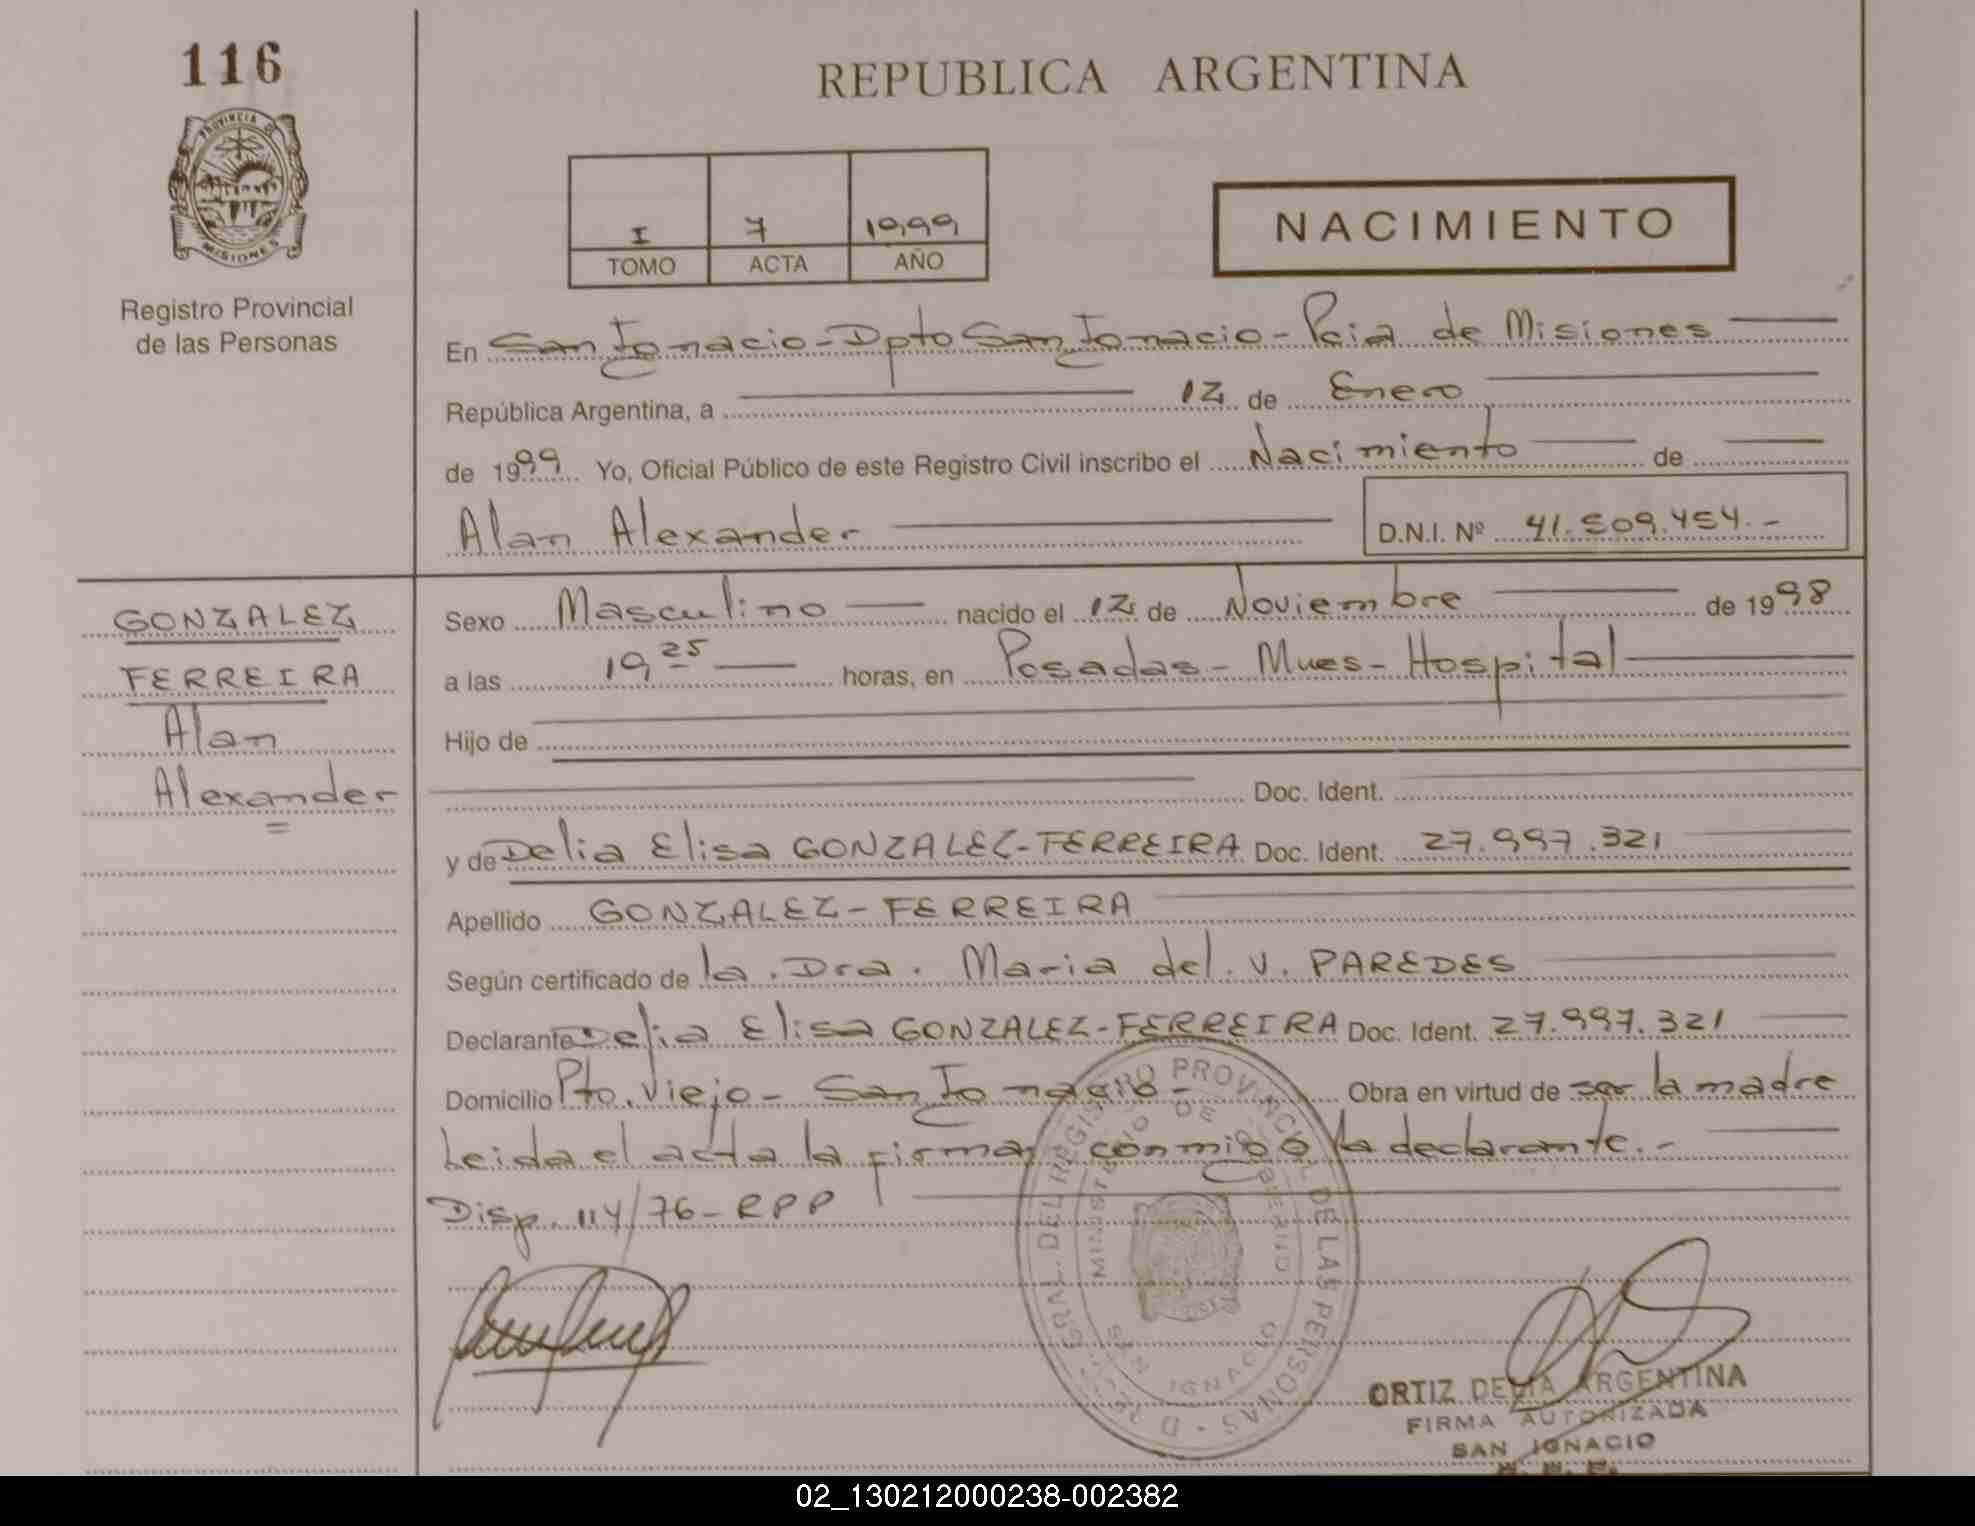 116
REPUBLICA ARGENTINA
PROVINCIA DE
MISIONES
Registro Provincial
de las Personas
I 7 1999
TOMO ACTA AÑO
NACIMIENTO
En San Ignacio - Dpto San Ignacio - Pcia de Misiones
República Argentina, a 12 de Enero
de 1999 Yo, Oficial Público de este Registro Civil inscribo el Nacimiento de
Alan Alexander D.N.I. Nº 41.509.454.-
GONZALEZ
FERREIRA
Alan
Alexander
Sexo Masculino nacido el 12 de Noviembre de 1998
a las 19 25 horas, en Posadas - Mnes - Hospital
Hijo de
Doc. Ident.
y de Delia Elisa GONZALEZ-FERREIRA Doc. Ident. 27.997.321
Apellido GONZALEZ-FERREIRA
Según certificado de la Dra. Maria del V. PAREDES
Declarante Delia Elisa GONZALEZ-FERREIRA Doc. Ident. 27.997.321
Domicilio Pto. Viejo - San Ignacio - Obra en virtud de ser la madre
Leida el acta la firma conmigo la declarante.-
Disp. 114/76 - RPP
GRAL. DEL REGISTRO PROVINCIAL DE LAS PERSONAS
MINISTERIO DE GOBIERNO
SAN IGNACIO
ORTIZ DELIA ARGENTINA
FIRMA AUTORIZADA
SAN IGNACIO
02_130212000238-002382